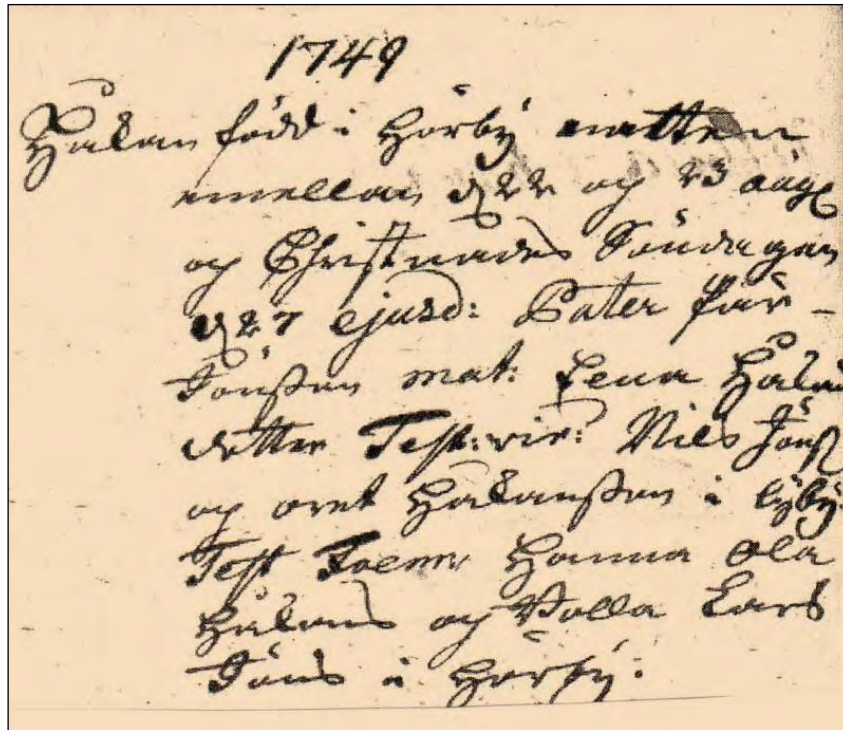 1749
Håkan född i Hörby natten
emellan d 22 og 23 aug
og Christnades Söndagen
d 27 ejusd: Pater Pär
Jönßon mat: Lena Håkans
dotter Test: vir: Nils Jönß
og Håkanßon i Lÿbÿ
Test Foem: Hanna Ola
Håkans og Lars
Jöns i Hörbÿ.